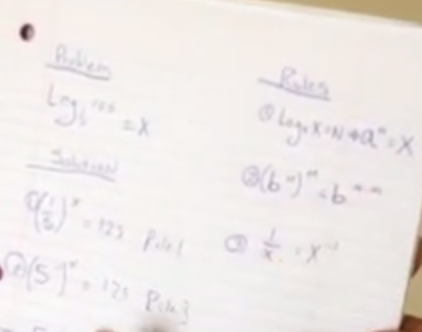 Problem
Log 125 = x
Solution
① (1/5)^x = 125 Rule 1
② (5^-1)^x = 125 Rule 3
Rules
① Logₐ X = N → a^n = X
② (b^n)^m = b^n·m
③ 1/x = x^-1